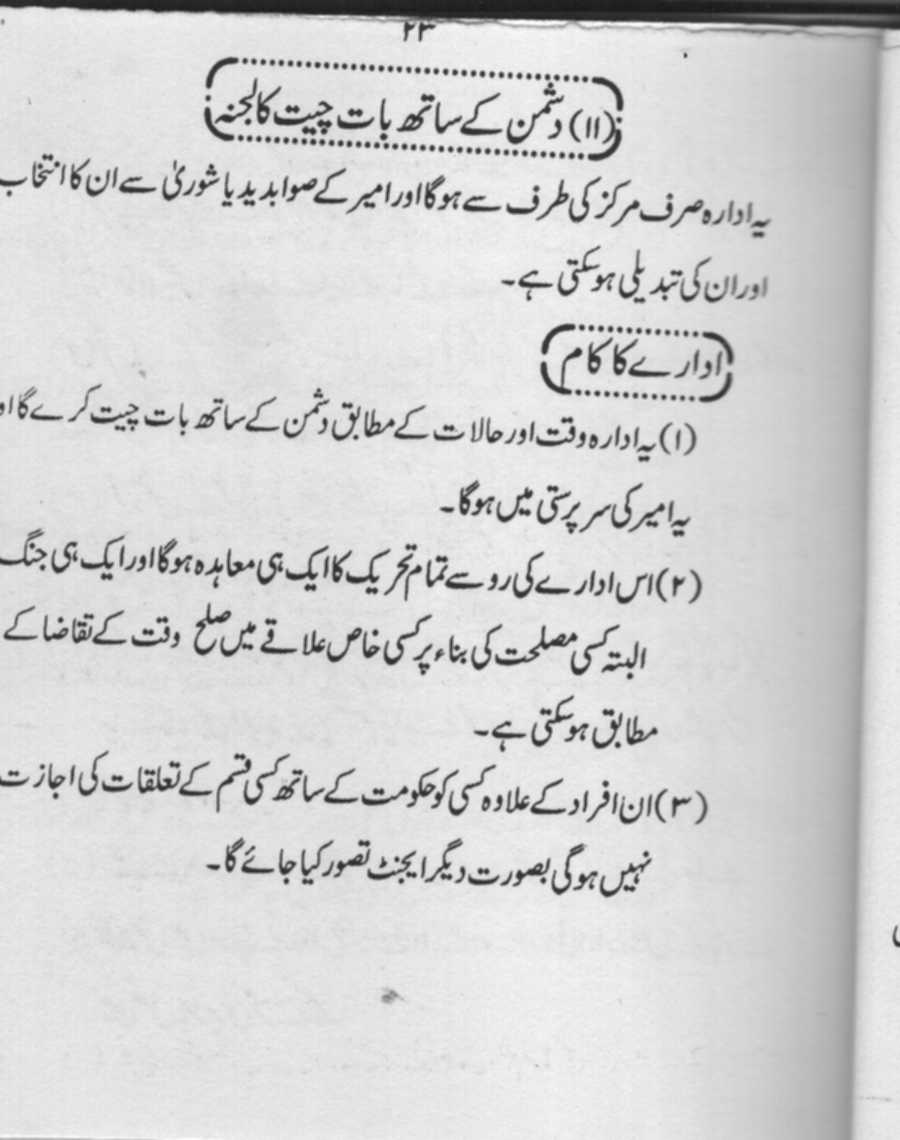 ۲۳
(۱۱) دشمن کے ساتھ بات چیت کا لجنہ
یہ ادارہ صرف مرکز کی طرف سے ہوگا اور امیر کے صوابدید یا شوریٰ سے ان کا انتخاب
اور ان کی تبدیلی ہوسکتی ہے۔
ادارے کا کام
(۱) یہ ادارہ وقت اور حالات کے مطابق دشمن کے ساتھ بات چیت کرے گا
یہ امیر کی سرپرستی میں ہوگا۔
(۲) اس ادارے کی رو سے تمام تحریک کا ایک ہی معاہدہ ہوگا اور ایک ہی جنگ
البتہ کسی مصلحت کی بناء پر کسی خاص علاقے میں صلح وقت کے تقاضا کے
مطابق ہوسکتی ہے۔
(۳) ان افراد کے علاوہ کسی کو حکومت کے ساتھ کسی قسم کے تعلقات کی اجازت
نہیں ہوگی بصورت دیگر ایجنٹ تصور کیا جائے گا۔